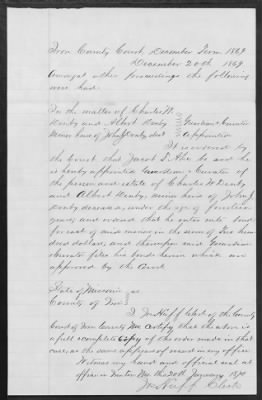 Iron County Court, December Term 1869
December 20th 1869
Amongst other proceedings the following
were had.
In the matter of Charles W.
Denby and Albert Denby
Minor heirs of John J Denby decd
Guardian & Curator
appointed
It is ordered by
the Court that Jacob T. Ake be and he
is hereby appointed Guardian & Curator of
the person and estate of Charles W Denby
and Albert Denby, minor heirs of John J
Denby deceased, under the age of fourteen
years, and ordered that he enter into bond
for each of said minors in the sum of Six hun-
dred dollars, and thereupon said Guardian
Curator files his bonds herein which are
approved by the Court
State of Missouri
County of Iron
I Jno. Huff Clerk of the County
Court of Iron County Mo. certify that the above is
a full complete copy of the order made in that
case, as the same appears of record in my office.
Witness my hand and official seal at
office in Ironton Mo. the 20th January 1870
Jno Huff Clerk